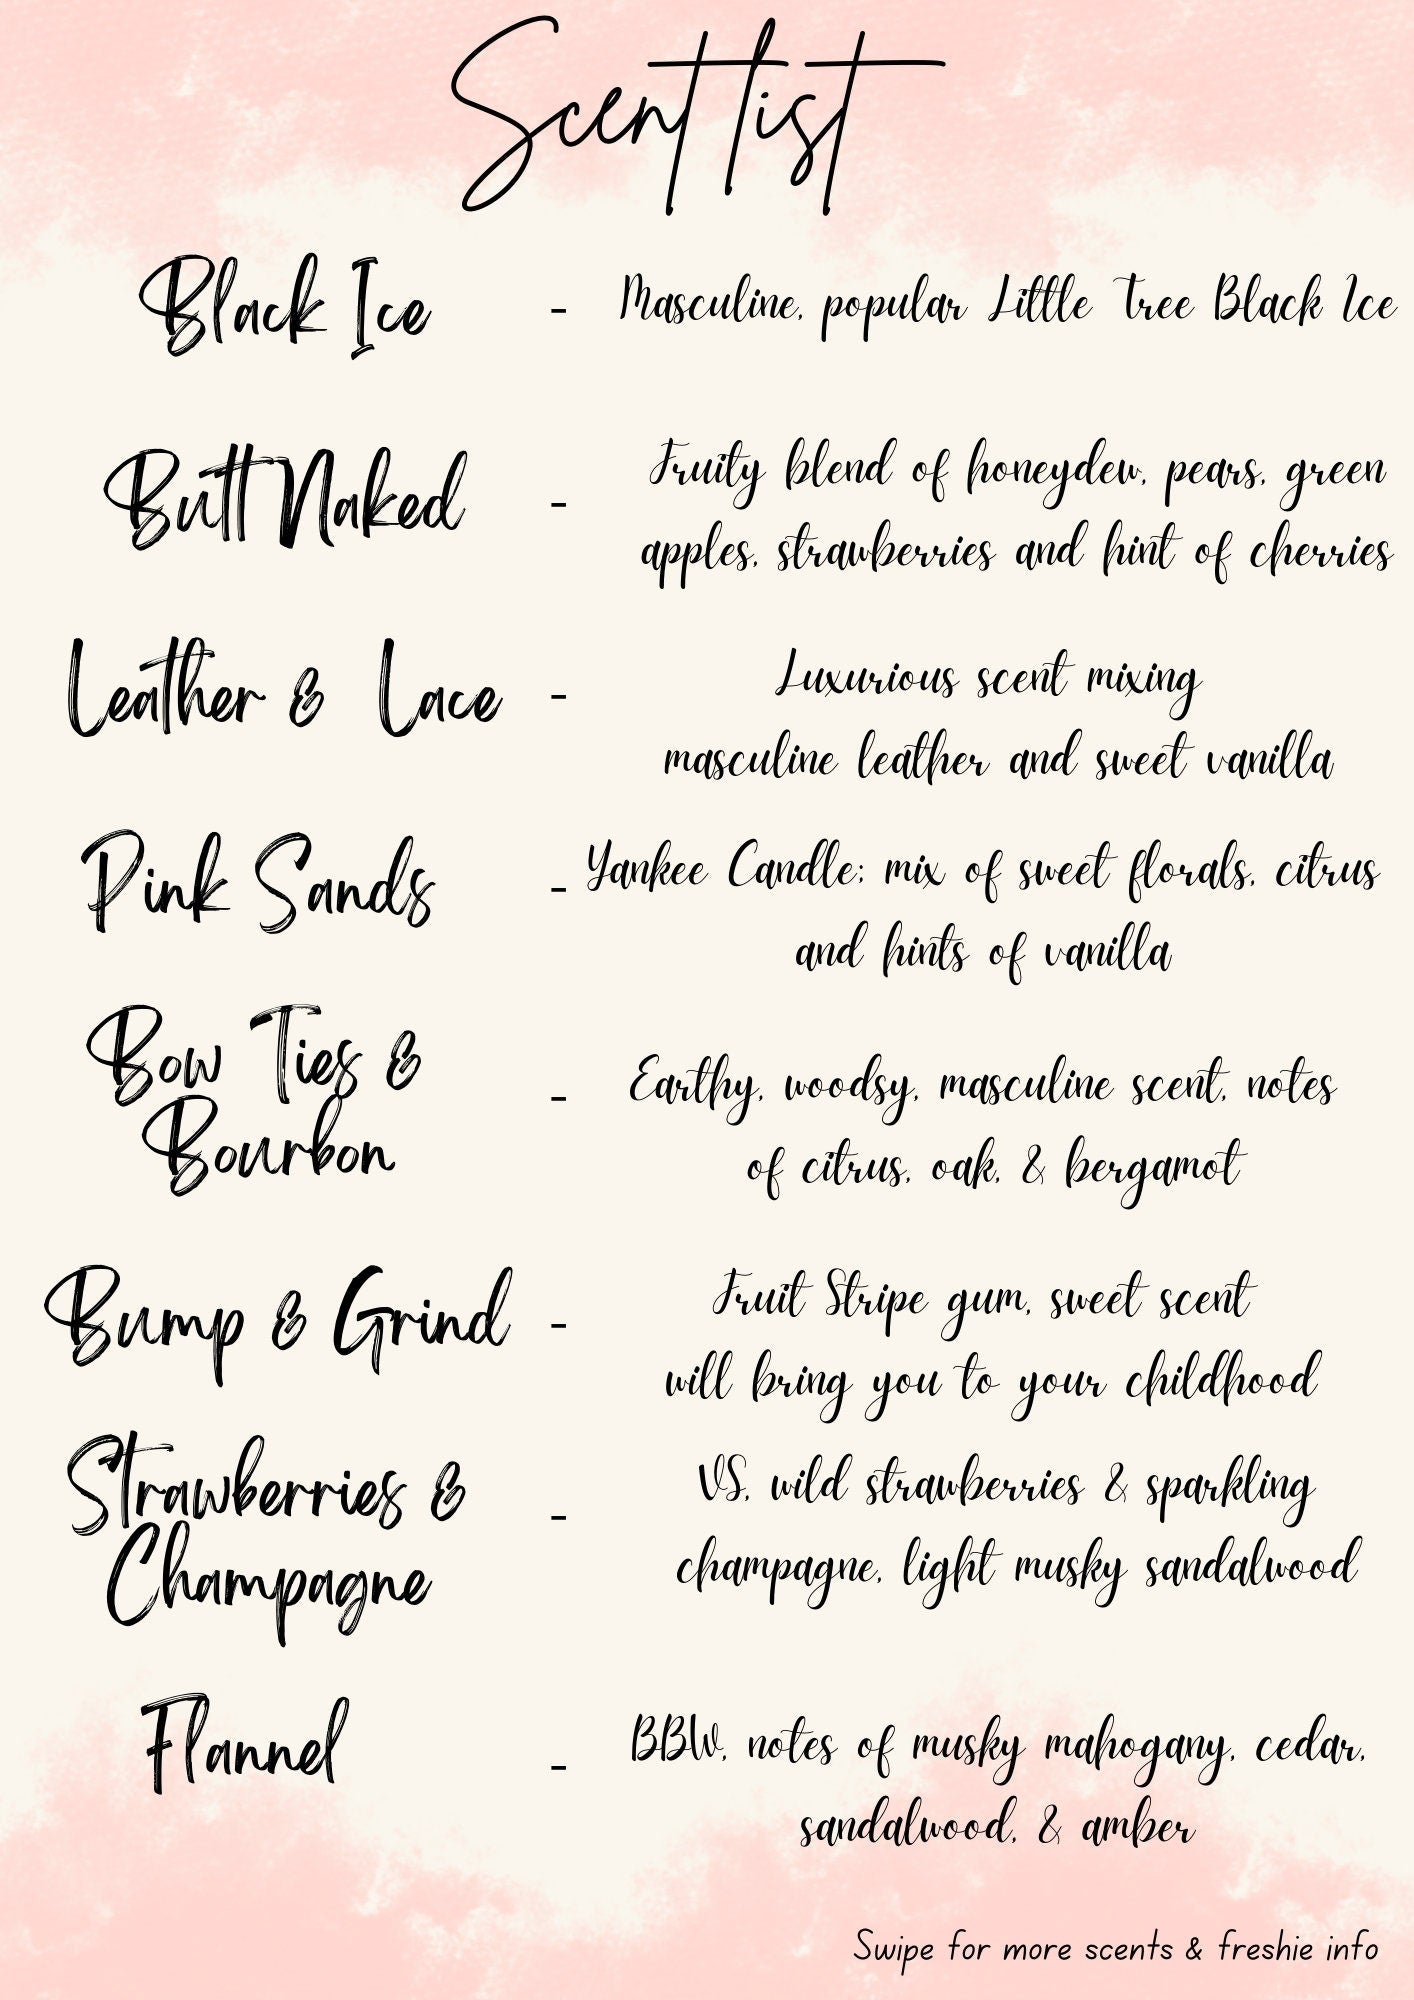 Scent list
Black Ice - Masculine, popular Little Tree Black Ice
Butt Naked - Fruity blend of honeydew, pears, green
apples, strawberries and hint of cherries
Leather & Lace - Luxurious scent mixing
masculine leather and sweet vanilla
Pink Sands - Yankee Candle; mix of sweet florals, citrus
and hints of vanilla
Bow Ties &
Bourbon - Earthy, woodsy, masculine scent, notes
of citrus, oak, & bergamot
Bump & Grind - Fruit Stripe gum, sweet scent
will bring you to your childhood
Strawberries &
Champagne - VS, wild strawberries & sparkling
champagne, light musky sandalwood
Flannel - BBW, notes of musky mahogany, cedar,
sandalwood, & amber
Swipe for more scents & freshie info